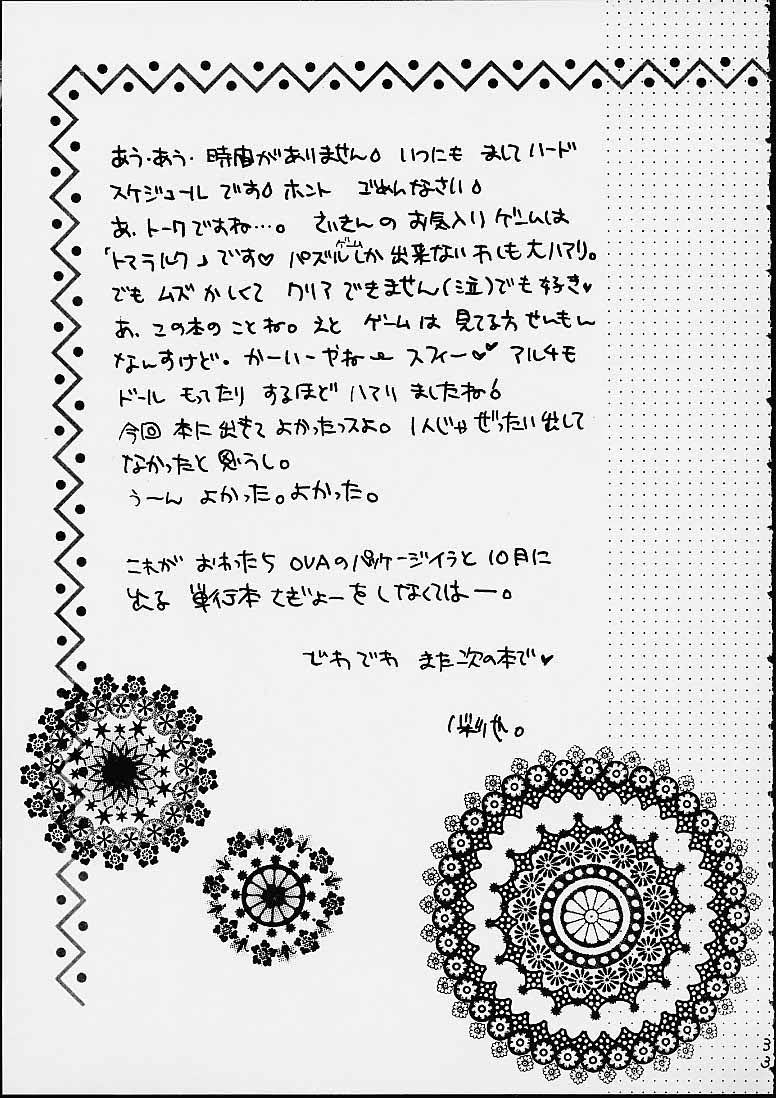 あう・あう・時間がありません💧 いつにも ましてハード
スケジュール です💧 ホント ゴめんなさい💧
あ、トークですね…。 さいきんの お気入り ゲームは
「トマラルク」です♥ パズルゲームしか 出来ない わしも 大ハマリ。
でも ムズ かしくて クリア できません(泣)でも 好き♥
あ、この本の ことね。えと ゲームは 見てる方 せんもん
なんすけど。かーいーやねー スフィー♥♥ アルチモ
ドール もってたり するほど ハマリ ましたね💧
今回 本に出きて よかったっスよ。 1人じゃ ぜったい出して
なかったと 思うし。
う〜ん よかった。よかった。
これが おわったら OVAのパッケージイラと 10月に
出る 単行本 さぎょーを しなくてはー。
でわでわ また 次の本で♥
33